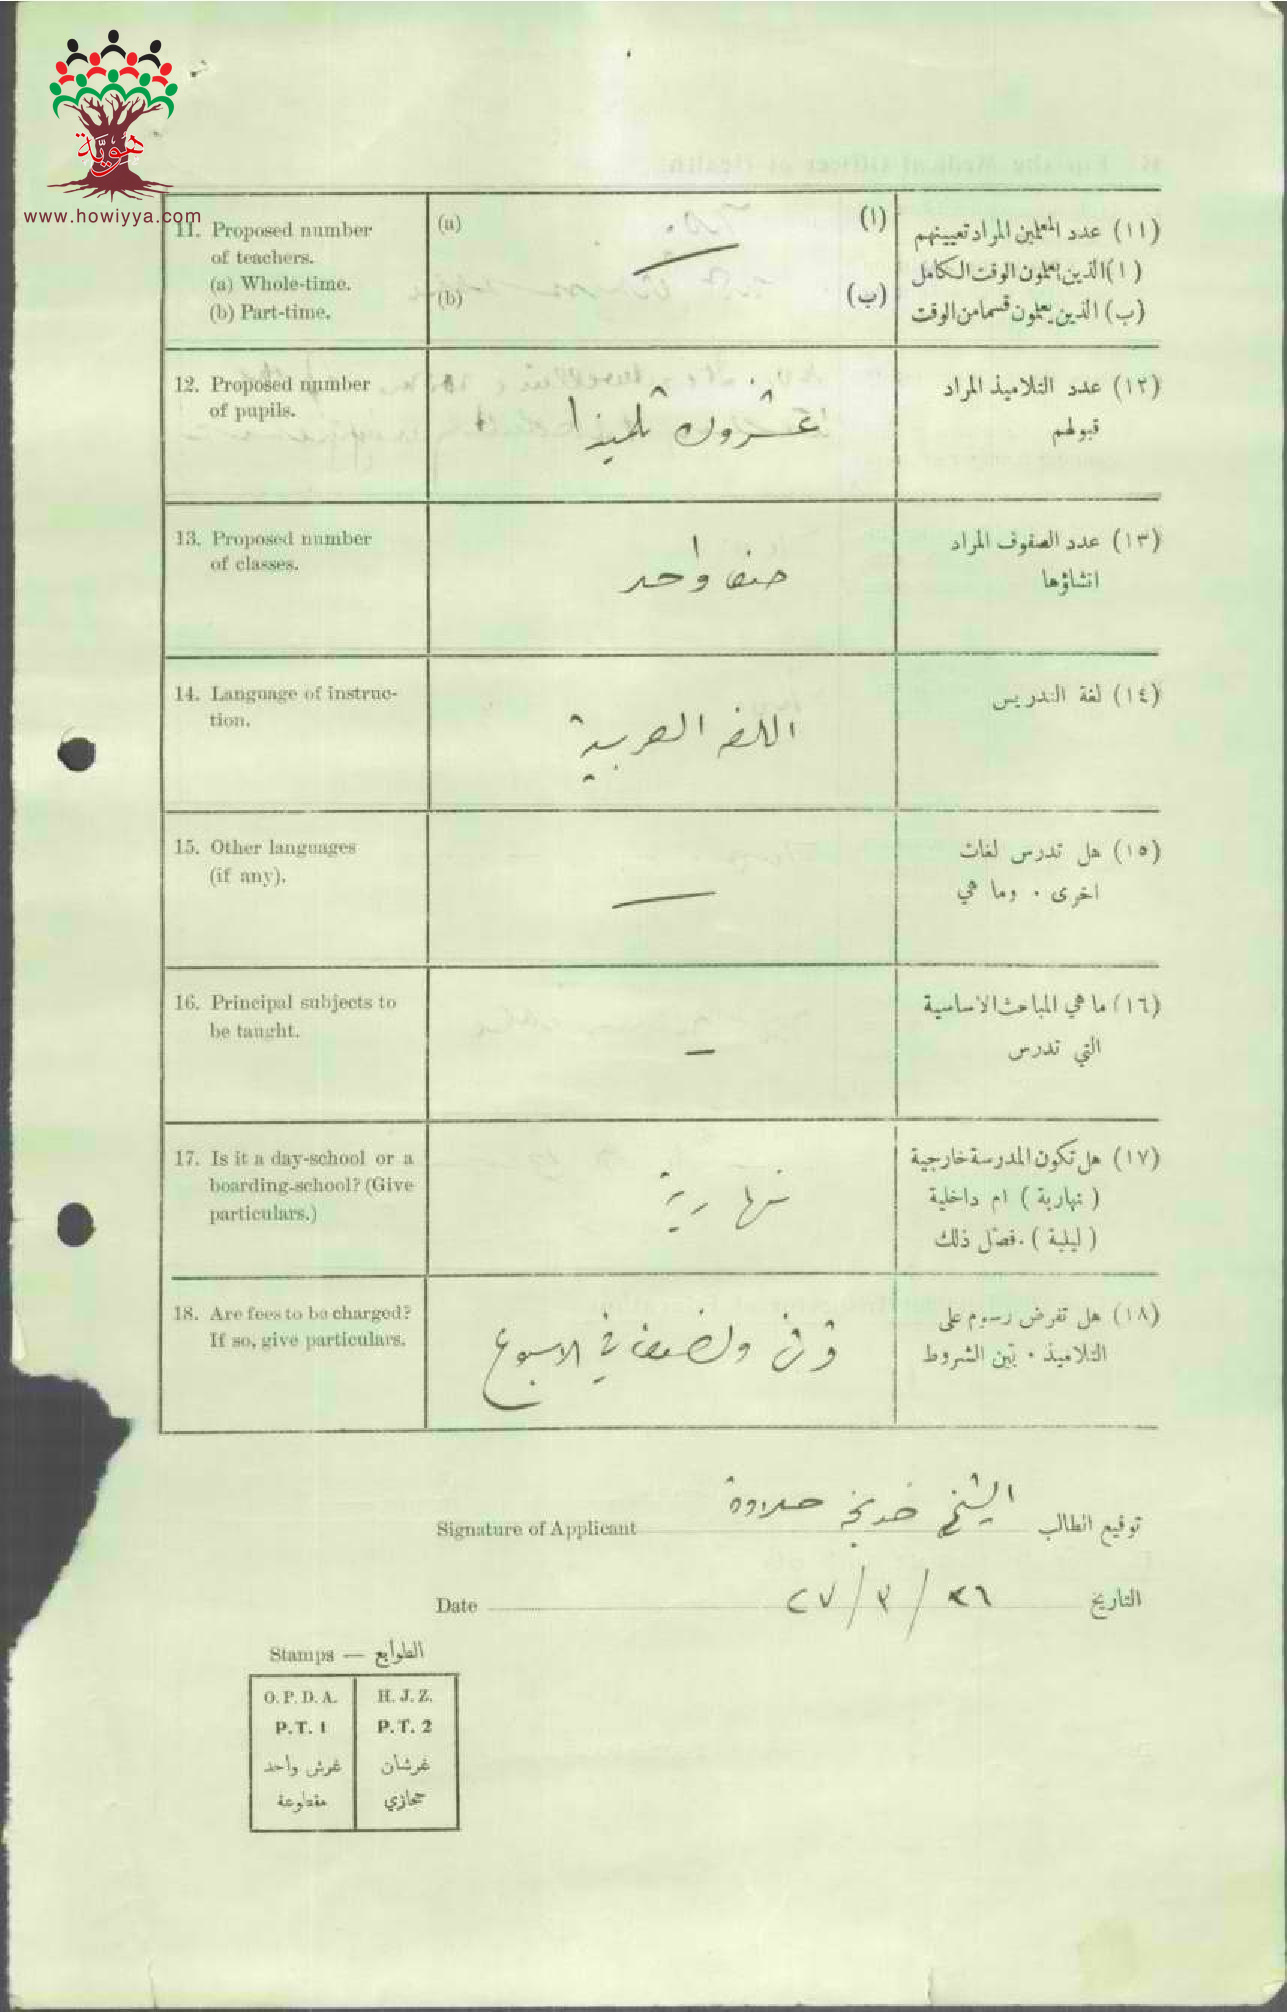 هوية
www.howiyya.com
11. Proposed number of teachers. (a) Whole-time. (b) Part-time.
(a)
(b)
(ا)
(ب)
(١١) عدد المعلمين المراد تعيينهم
(ا) الذين يعملون الوقت الكامل
(ب) الذين يعملون قسما من الوقت
12. Proposed number of pupils.
عشرون تلميذا
(١٢) عدد التلاميذ المراد
قبولهم
13. Proposed number of classes.
صف واحد
(١٣) عدد الصفوف المراد
انشاؤها
14. Language of instruc-
tion.
اللغه العربية
(١٤) لغة التدريس
15. Other languages
(if any).
(١٥) هل تدرس لغات
اخرى . وما هي
16. Principal subjects to
be taught.
(١٦) ما هي المباحث الاساسية
التي تدرس
17. Is it a day-school or a
boarding-school? (Give
particulars.)
نهارية
(١٧) هل تكون المدرسة خارجية
(نهارية) ام داخلية
(ليلية). فصّل ذلك
18. Are fees to be charged?
If so, give particulars.
قرش ونصف في الاسبوع
(١٨) هل تفرض رسوم على
التلاميذ . بين الشروط
Signature of Applicant
خديجة حلاوة
توقيع الطالب
Date
٢٦ / ٣ / ٢٧
التاريخ
Stamps — الطوابع
O.P.D.A. H.J.Z.
P.T. 1 P.T. 2
غرش واحد غرشان
مقطوعة حجازي